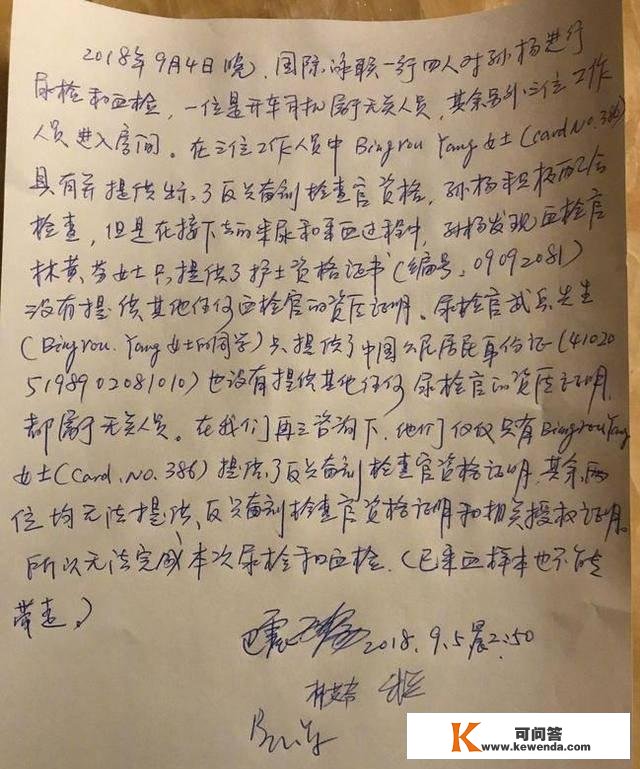 2018年9月4日晚，国际泳联一行四人对孙杨进行
尿检和血检，一位是开车司机属于无关人员，其余另外三位工作
人员进入房间。在三位工作人员中Bingrou Yang女士(Card.No.386)
具有并提供出示了反兴奋剂检查官资格，孙杨积极配合
检查，但是在接下去的采尿和采血过程中，孙杨发现血检官
林黄芬女士只提供了护士资格证书(编号:09092081)
没有提供其他任何血检官的资质证明。尿检官武兵先生
(Bingrou.Yang女士的同学)只提供了中国公民居民身份证(41020
5198902081010)也没有提供其他任何尿检官的资质证明，
都属于无关人员。在我们再三咨询下，他们仅仅只有Bingrou Yang
女士(Card.No.386)提供了反兴奋剂检查官资格证明，其余两
位均无法提供反兴奋剂检查官资格证明和相关授权证明。
所以无法完成本次尿检和血检.(已采血样本也不能
带走。)
2018.9.5晨2:50
K 可问答
www.kewenda.com